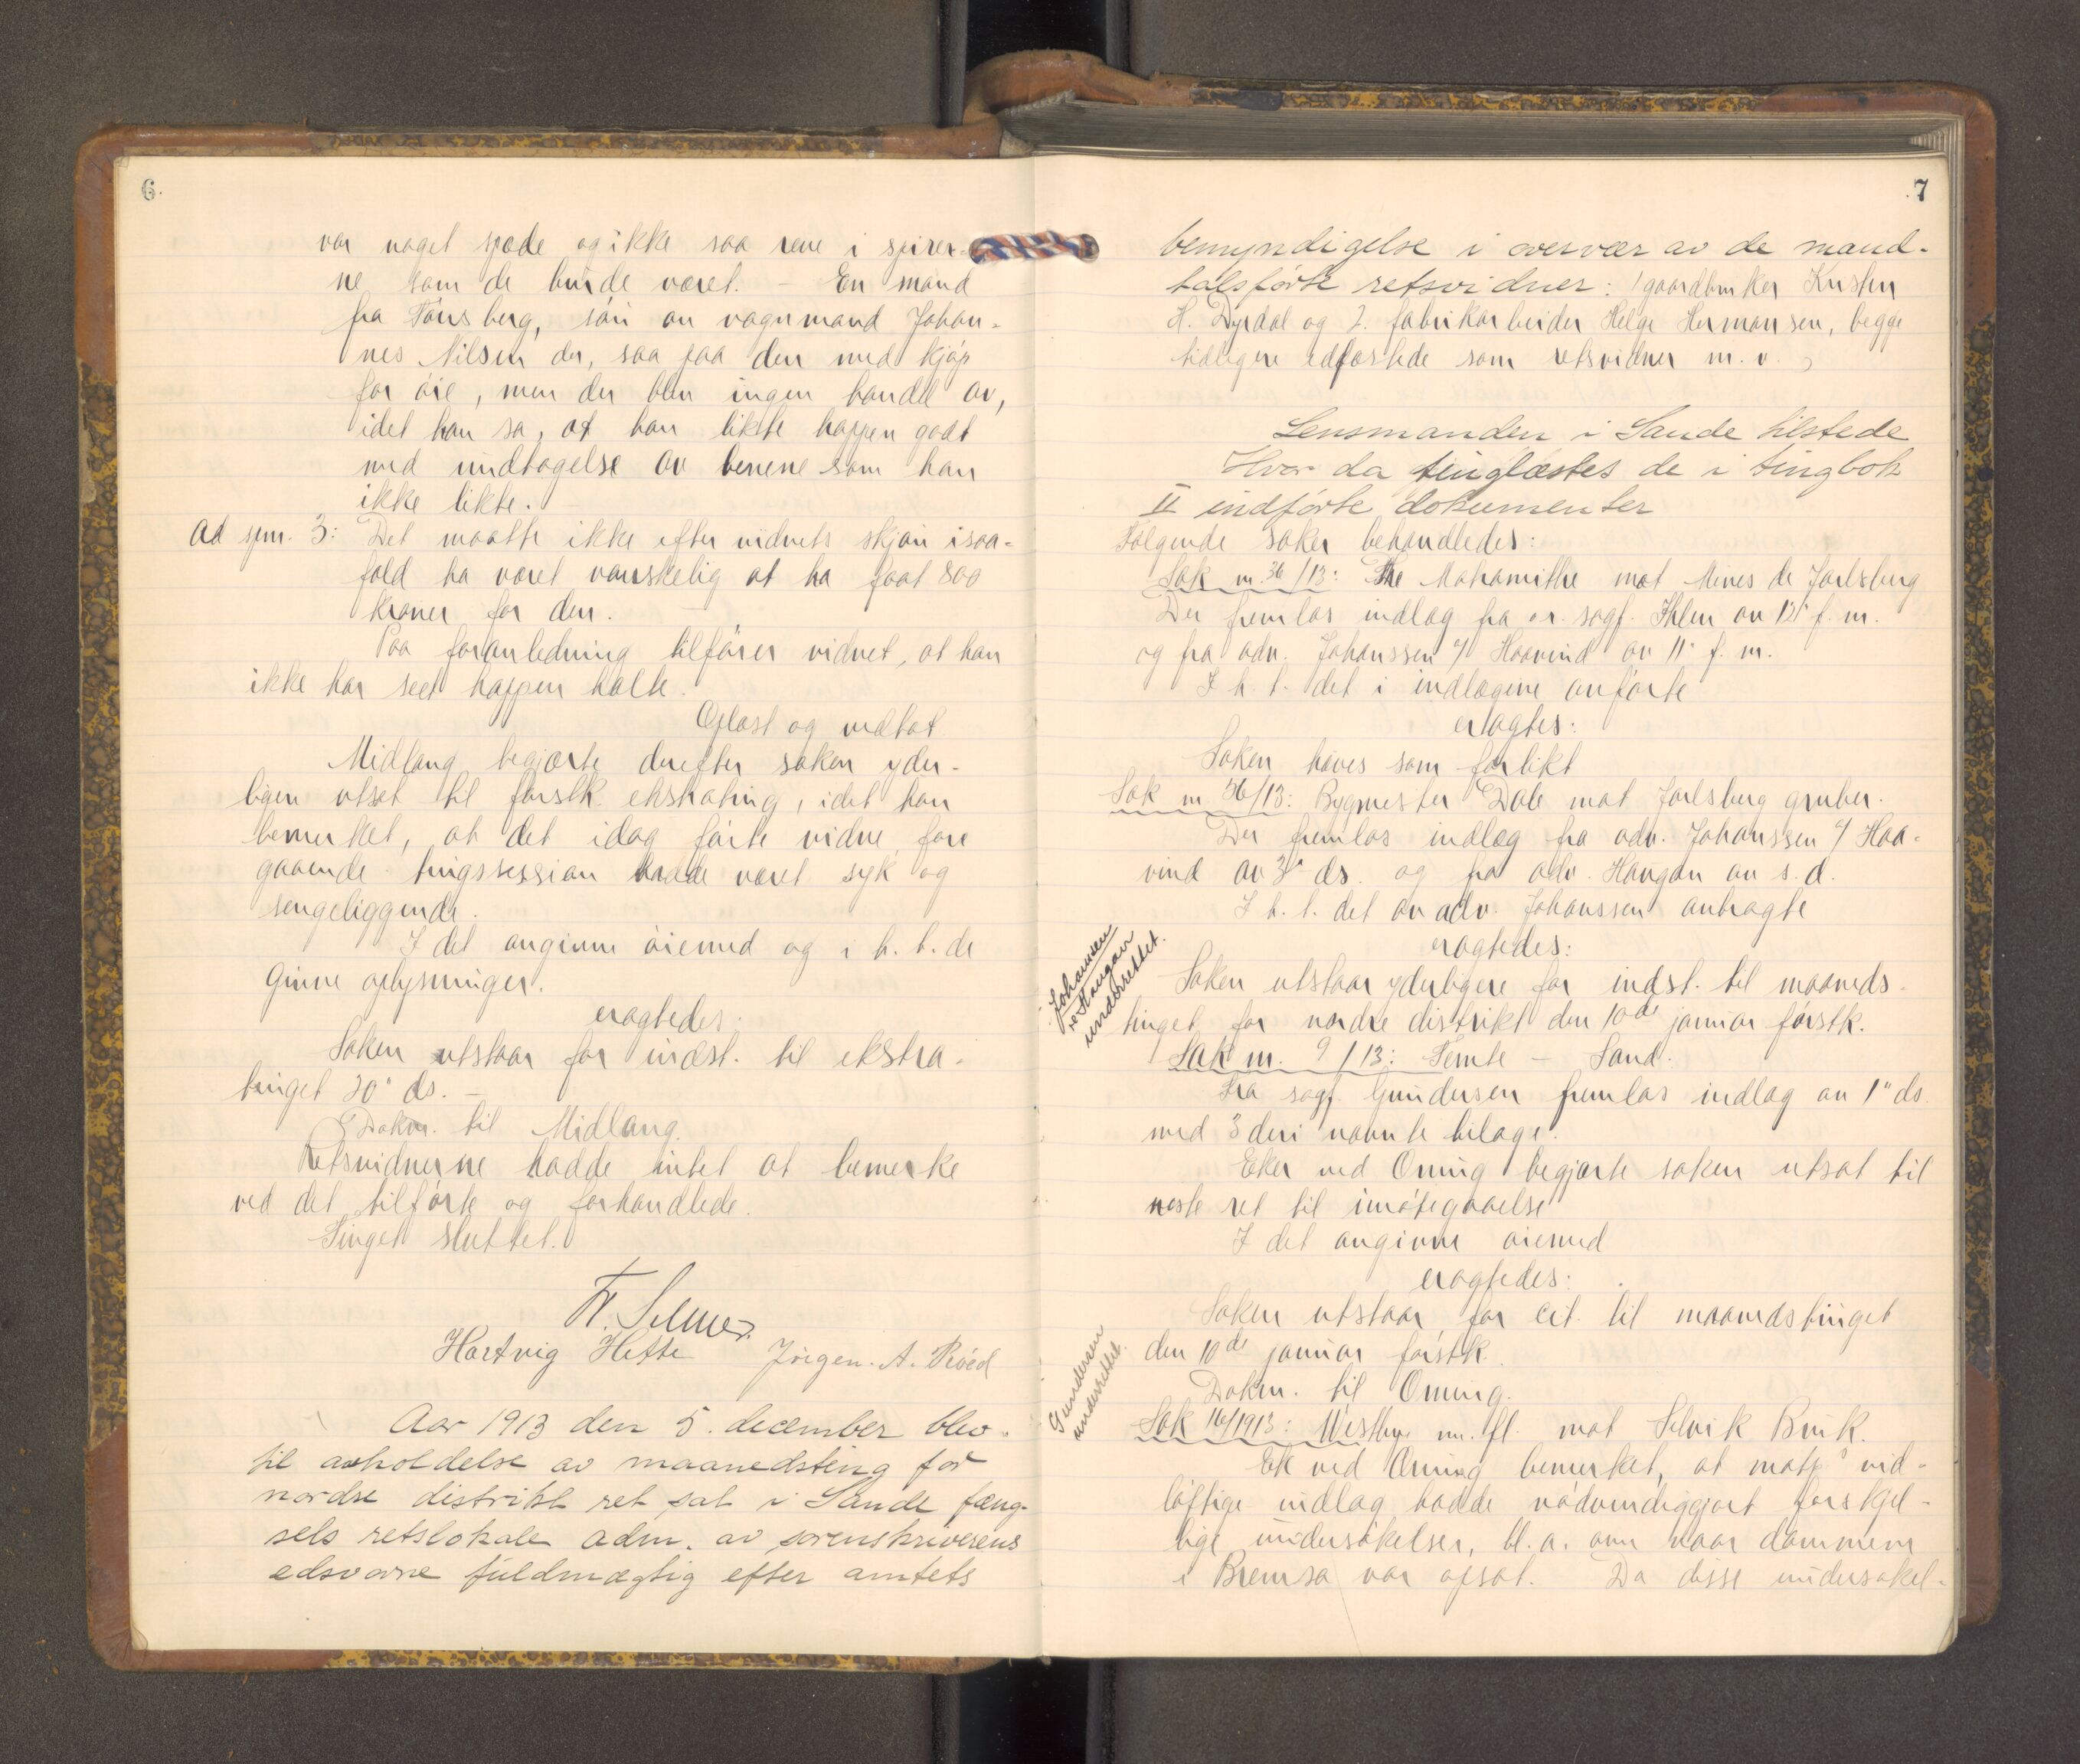 6.
var noget spæde og ikke saa rene i spirer-
ne som de burde været. - En mand
fra Tønsberg, søn av vognmand Johan-
nes Nilsen der, saa paa den med kjøp
for øie, men der blev ingen handel av,
idet han sa, at han likte hoppen godt
med undtagelse av benene som han
ikke likte.
Ad spm. 3: Det maatte ikke efter vidnets skjøn isaa-
fald ha været vanskelig at ha faat 800
kroner for den.
Paa foranledning tilfører vidnet, at han
ikke har seet hoppen halte.
Oplæst og vedtat
Midlang begjærte derefter saken yder-
ligere utsat til førstk. ekstrating, idet han
bemerket, at det idag førte vidne, fore
gaaende tingssession hadde været syk og
sengeliggende.
I det angivne øiemed og i h. t. de
givne oplysninger.
eragtedes:
Saken utstaar for indst. til ekstra-
tinget 20' ds. -
Dokm. til Midlang.
Retsvidnerne hadde intet at bemerke
ved det tilførte og forhandlede.
Tinget sluttet.
Fr. Selmer.
Hartvig Hette Jørgen. A. Røed
Aar 1913 den 5. december blev
til avholdelse av maanedsting for
nordre distrikt ret sat i Sande fæng-
sels retslokale adm. av sorenskriverens
edsvorne fuldmægtig efter amtets
7
bemyndigelse i overvær av de mand-
talsførte retsvidner: 1 gaardbruker Kristen
H. Dyrdal og 2. fabrikarbeider Helge Hermansen, begge
tidligere edfæstede som retsvidner m. v.
Lensmanden i Sande tilstede
Hvor da tinglæstes de i tingbok
II indførte dokumenter
Følgende saker behandledes:
Sak nr. 36/13: The mot Mines de Jarlsberg
Der fremlas indlæg fra or. sagf. Ihlen av 12' f. m.
og fra adv. Johanssen v/ Haavind av 11' f. m.
I h. t. det i indlægene anførte
eragtes:
Saken hæves som forlikt
Sak nr 56/13: Bygmester Dale mot Jarlsberg gruber.
Der fremlas indlæg fra adv. Johanssen v/ Haa-
vind av 3' ds. og fra adv. Haugan av s. d.
I h. t. det av adv. Johanssen antragte
eragtedes:
Johanssen
& Haugan
underrettet.
Saken utstaar yderligere for indst. til maaneds-
tinget for nordre distrikt den 10de januar førstk.
Sak nr. 9/13: Temte - Sand.
Fra sagf. Gundersen fremlas indlæg av 1" ds.
med 3 deri nævnte bilage.
Eker ved Oming begjærte saken utsat til
næste ret til imøtegaaelse
I det angivne øiemed
eragtedes:
Saken utstaar for cit. til maanedstinget
den 10de januar førstk.
Gundersen
underrettet.
Dokm. til Oming.
Sak 16/1913: Westbye m. fl. mot Selvik Bruk.
Ek ved Oming bemerket, at motp' vid-
løftige indlæg hadde nødvendiggjort forskjel-
lige undersøkelser, bl. a. om naar dammene
i Bremsa var opsat. Da disse undersøkel-